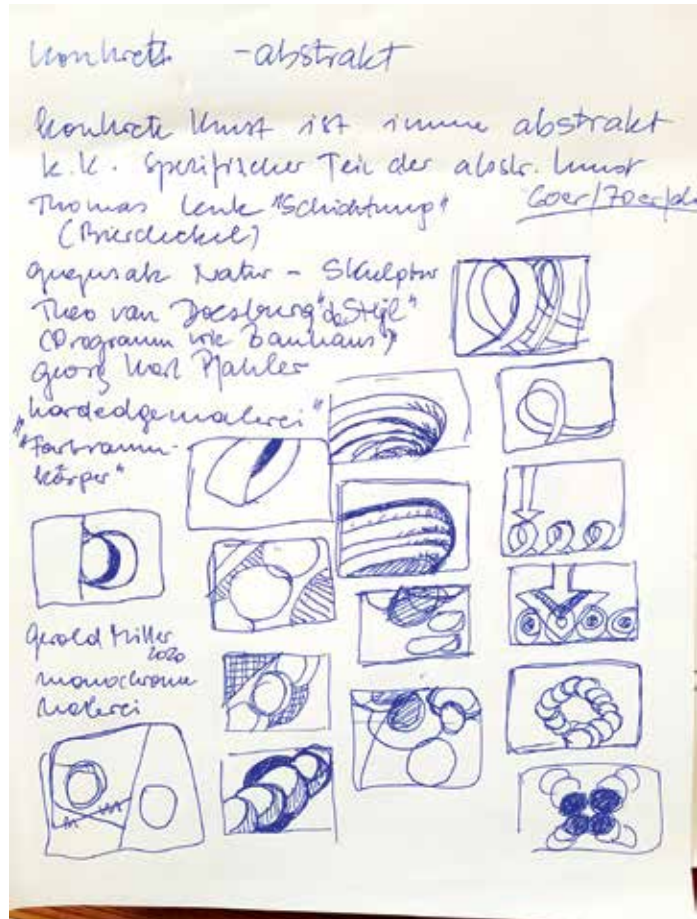 konkrete - abstrakt
konkrete Kunst ist imme abstrakt
k.k. spezifischer Teil der abstr. Kunst
Thomas Lenk "Schichtung" 60er/70er
(Bierdeckel)
gegensatz Natur - Skulptur
Theo van Doesburg "de Stijl"
(Programm wie Bauhaus)
Georg Karl Pfahler
hardedgemalerei"
"Farbraum-
körper"
Gerold Miller
2020
monochrome
Malerei